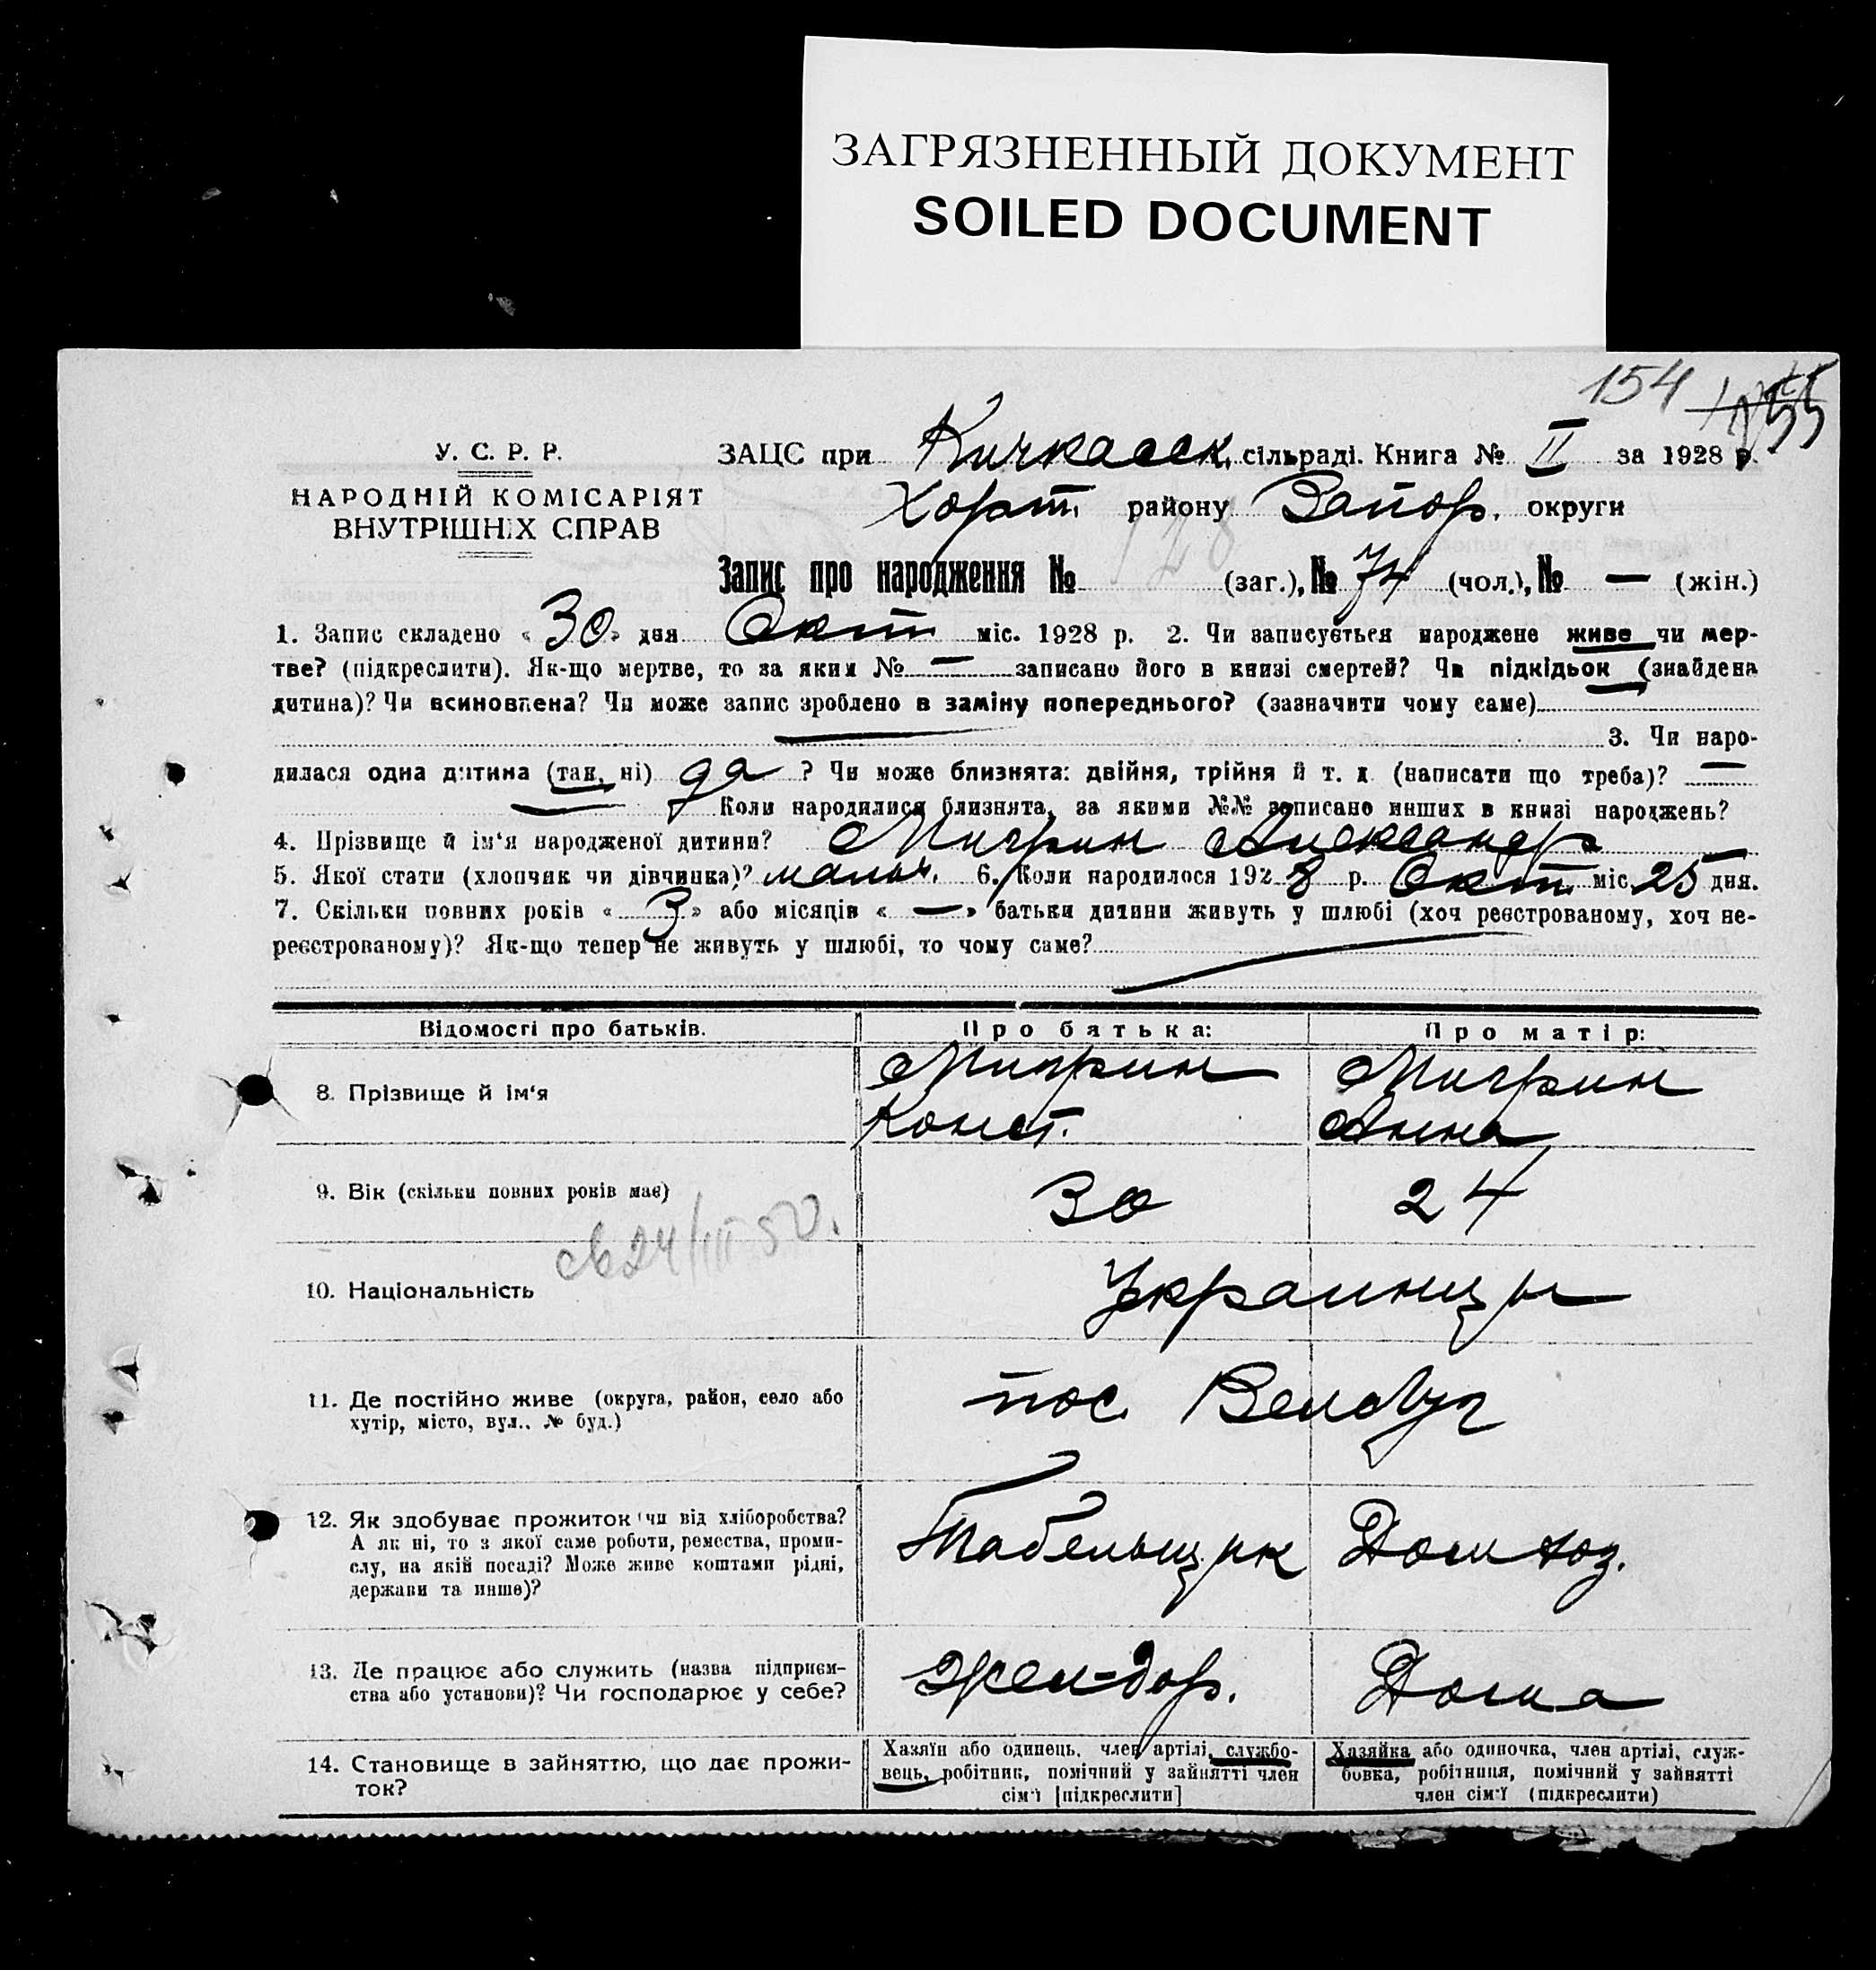 ЗАГРЯЗНЕННЫЙ ДОКУМЕНТ
SOILED DOCUMENT
154
У. С. Р. Р.
НАРОДНІЙ КОМІСАРІЯТ
ВНУТРІШНІХ СПРАВ
ЗАЦС при Кичкасск. сільраді. Книга № II за 1928 р.
Хорт. району Запор. округи
128
Запис про народження № (заг.), № 74 (чол.), № — (жін.)
1. Запис складено « 30 » дня Окт міс. 1928 р. 2. Чи записується народжене живе чи мер-
тве? (підкреслити). Як-що мертве, то за яким № — записано його в книзі смертей? Чи підкідьок (знайдена
дитина)? Чи всиновлена? Чи може запис зроблено в заміну попереднього? (зазначити чому саме)
3. Чи наро-
дилася одна дитина (так, ні) да ? Чи може близнята: двійня, трійня й т. д. (написати що треба)? —
— Коли народилися близнята, за якими №№ записано инших в книзі народжень?
4. Прізвище й ім‘я народженої дитини? Мигрин Александр
5. Якої стати (хлопчик чи дівчинка)? мальч. 6. Коли народилося 1928 р. Окт. міс. 25 дня.
7. Скільки повних років « 3 » або місяців « — » батьки дитини живуть у шлюбі (хоч реєстрованому, хоч не-
реєстрованому)? Як-що тепер не живуть у шлюбі, то чому саме?
Відомості про батьків. Про батька: Про матір:
8. Прізвище й ім‘я Мигрин Конст. Мигрин Анна
9. Вік (скільки повних років має) 30 24
св 24/III 50.
10. Національність Украинцы
11. Де постійно живе (округа, район, село або
хутір, місто, вул., № буд.) пос. Вел Луг
12. Як здобуває прожиток (чи від хліборобства?
А як ні, то з якої саме роботи, ремества, проми-
слу, на якій посаді? Може живе коштами рідні,
держави та инше)? Табельщик Дом хоз.
13. Де працює або служить (назва підприєм-
ства або установи)? Чи господарює у себе? Жел-дор. Дома
14. Становище в зайняттю, що дає прожи-
ток?
Хазяїн або одинець, член артілі, службо-
вець, робітник, помічний у зайнятті член
сім‘ї [підкреслити]
Хазяйка або одиночка, член артілі, служ-
бовка, робітниця, помічний у зайнятті
член сім‘ї (підкреслити)